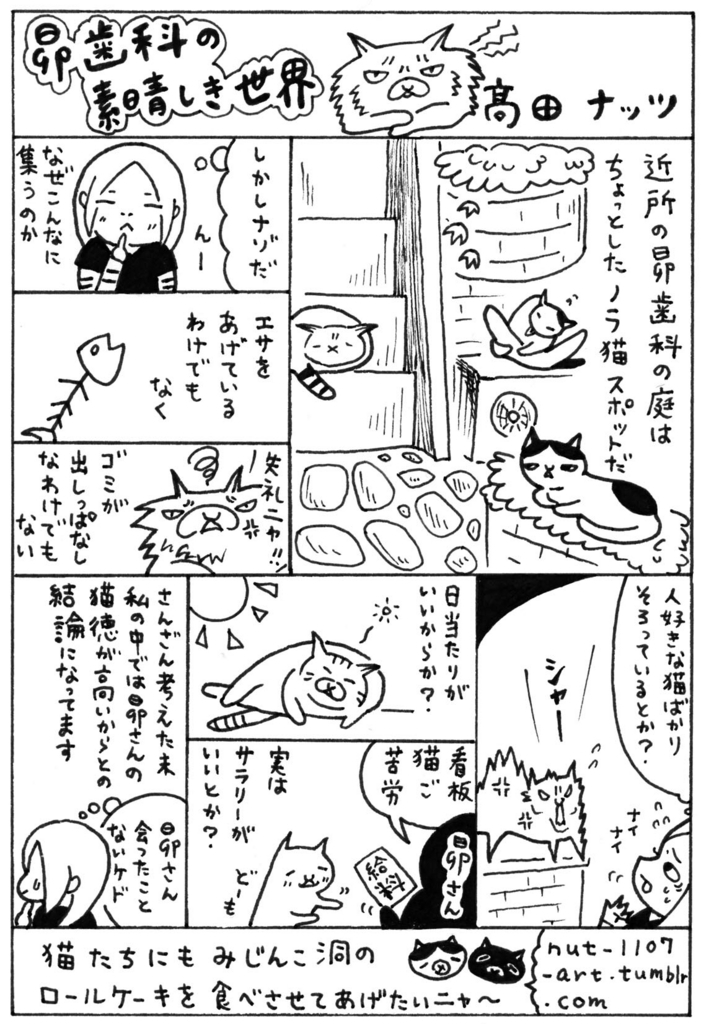 昴歯科の
素晴しき世界
高田 ナッツ
近所の昴歯科の庭は
ちょっとしたノラ猫スポットだ
しかしナゾだ
んー
なぜこんなに
集うのか
エサを
あげている
わけでも
なく
失礼ニャ!!
ゴミが
出しっぱなし
なわけでも
ない
人好きな猫ばかり
そろっているとか?
シャー
ナイ
ナイ
日当たりが
いいからか?
看板
猫ご
苦労
昴さん
給料
実は
サラリーが
いいとか?
どーも
さんざん考えた末
私の中では昴さんの
猫徳が高いからとの
結論になってます
昴さん
会ったこと
ないケド
猫たちにもみじんこ洞の
ロールケーキを食べさせてあげたいニャ〜
nut-1107
-art.tumblr
.com